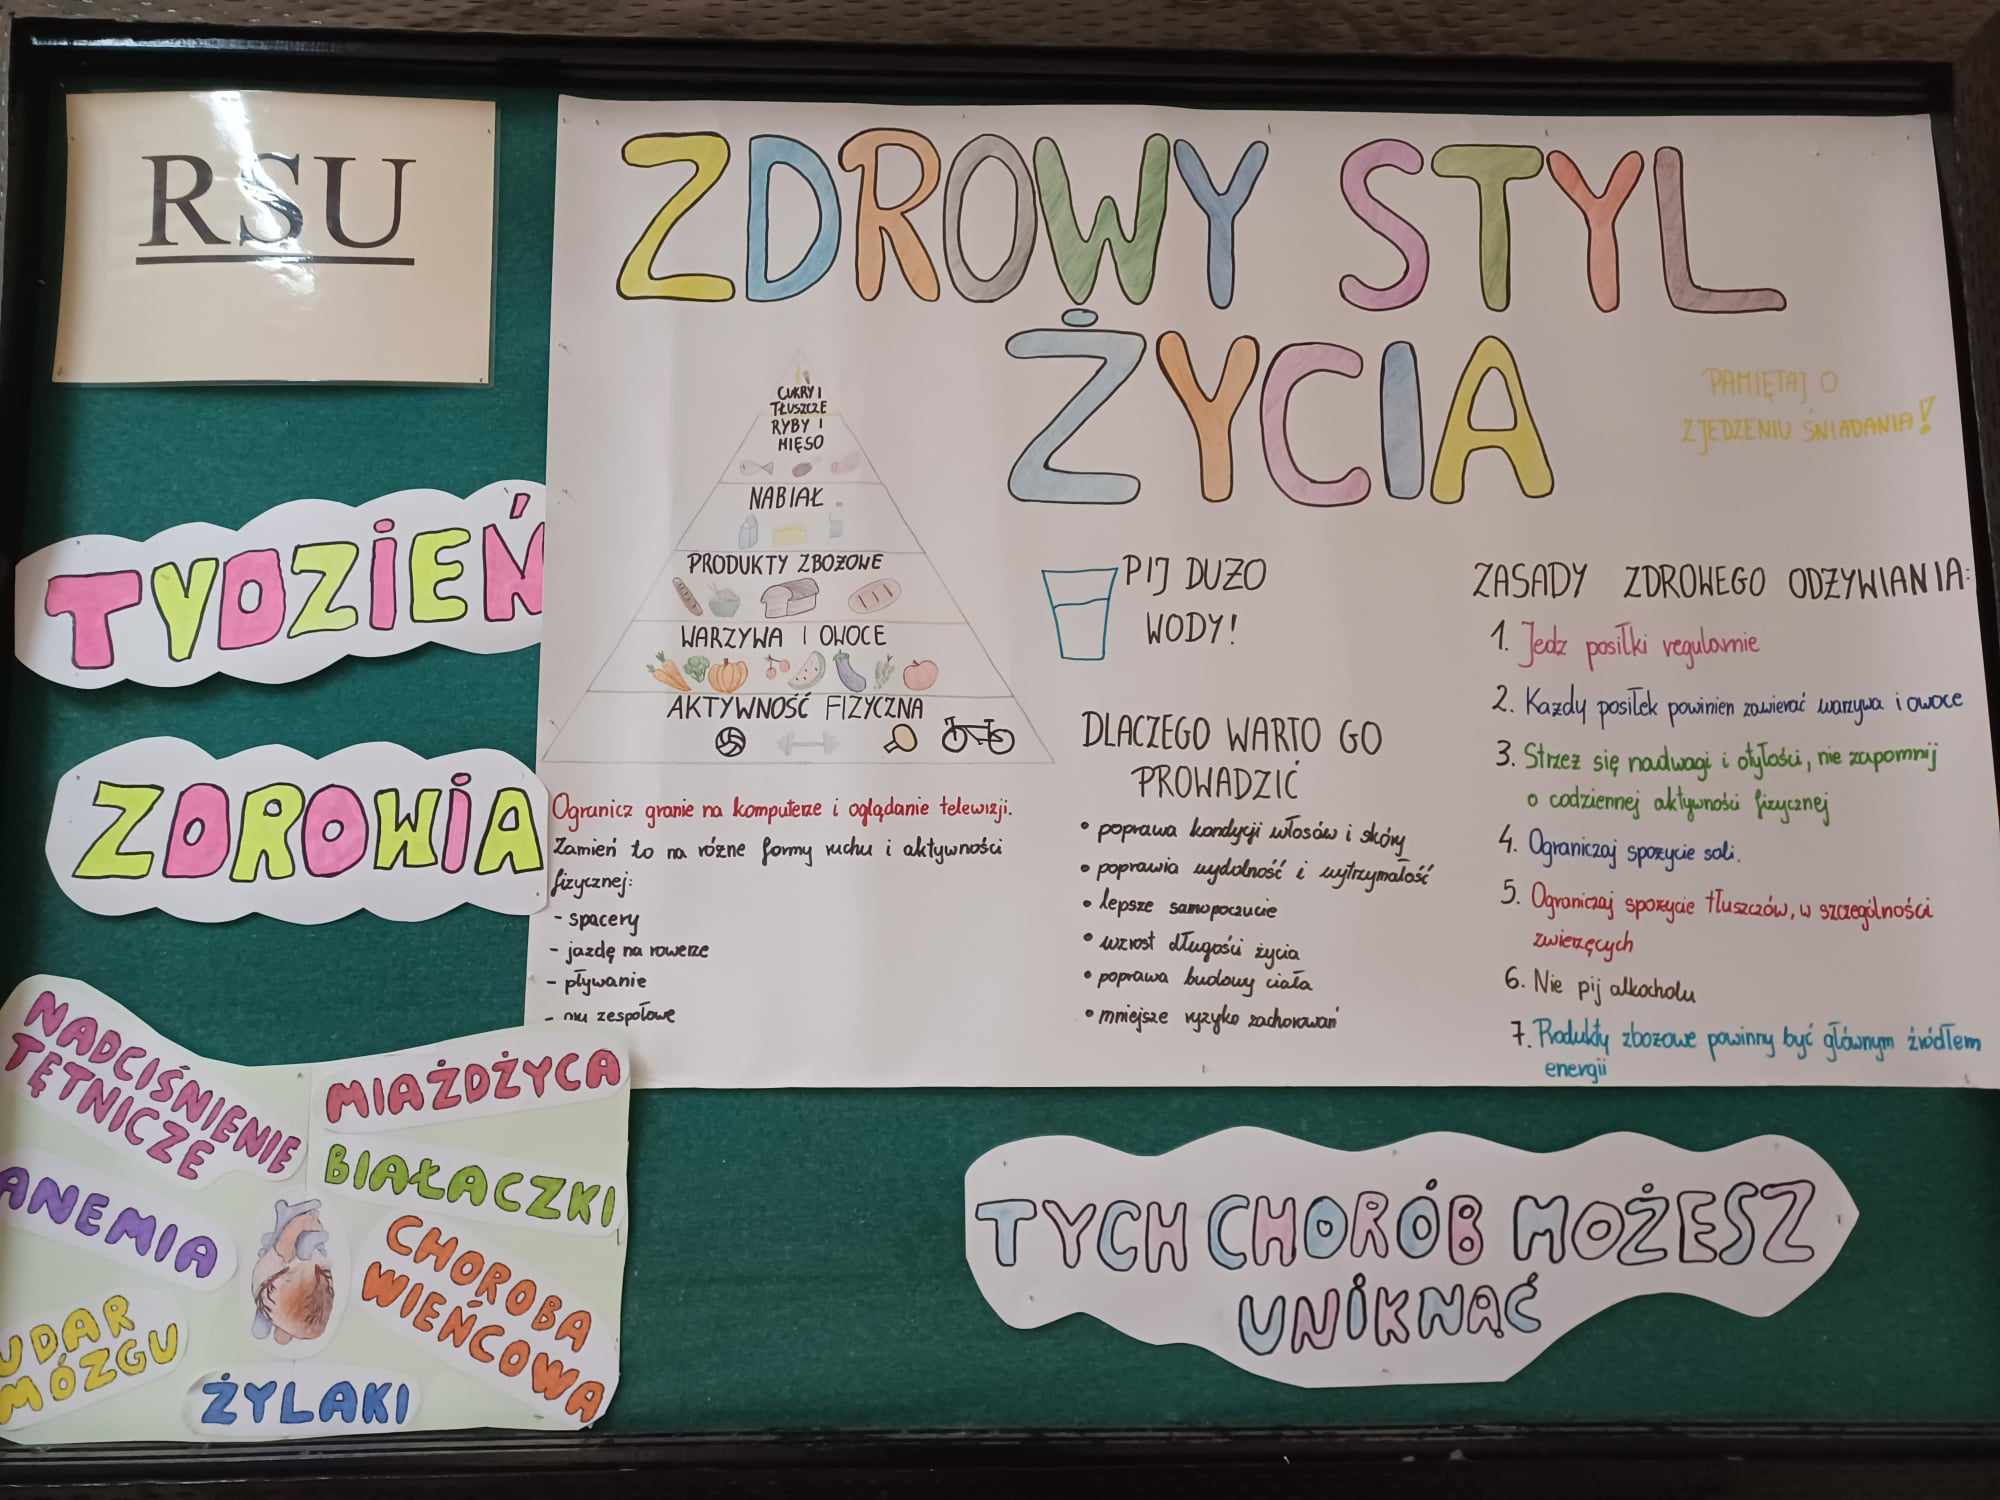 RSU
ZDROWY STYL
ŻYCIA
PAMIĘTAJ O
ZJEDZENIU ŚNIADANIA!
TYDZIEŃ
ZDROWIA
CUKRY I
TŁUSZCZE
RYBY I
MIĘSO
NABIAŁ
PRODUKTY ZBOŻOWE
WARZYWA I OWOCE
AKTYWNOŚĆ FIZYCZNA
Ogranicz granie na komputerze i oglądanie telewizji.
Zamień to na różne formy ruchu i aktywności
fizycznej:
- spacery
- jazdę na rowerze
- pływanie
- gry zespołowe
PIJ DUŻO
WODY!
DLACZEGO WARTO GO
PROWADZIĆ
• poprawa kondycji włosów i skóry
• poprawia wydolność i wytrzymałość
• lepsze samopoczucie
• wzrost długości życia
• poprawa budowy ciała
• mniejsze ryzyko zachorowań
ZASADY ZDROWEGO ODŻYWIANIA:
1. Jedz posiłki regularnie
2. Każdy posiłek powinien zawierać warzywa i owoce
3. Strzeż się nadwagi i otyłości, nie zapomnij
o codziennej aktywności fizycznej
4. Ograniczaj spożycie soli.
5. Ograniczaj spożycie tłuszczów, w szczególności
zwierzęcych
6. Nie pij alkocholu
7. Produkty zbożowe powinny być głównym źródłem
energii
NADCIŚNIENIE
TĘTNICZE
MIAŻDŻYCA
BIAŁACZKI
ANEMIA
CHOROBA
WIEŃCOWA
UDAR
MÓZGU
ŻYLAKI
TYCH CHORÓB MOŻESZ
UNIKNĄĆ